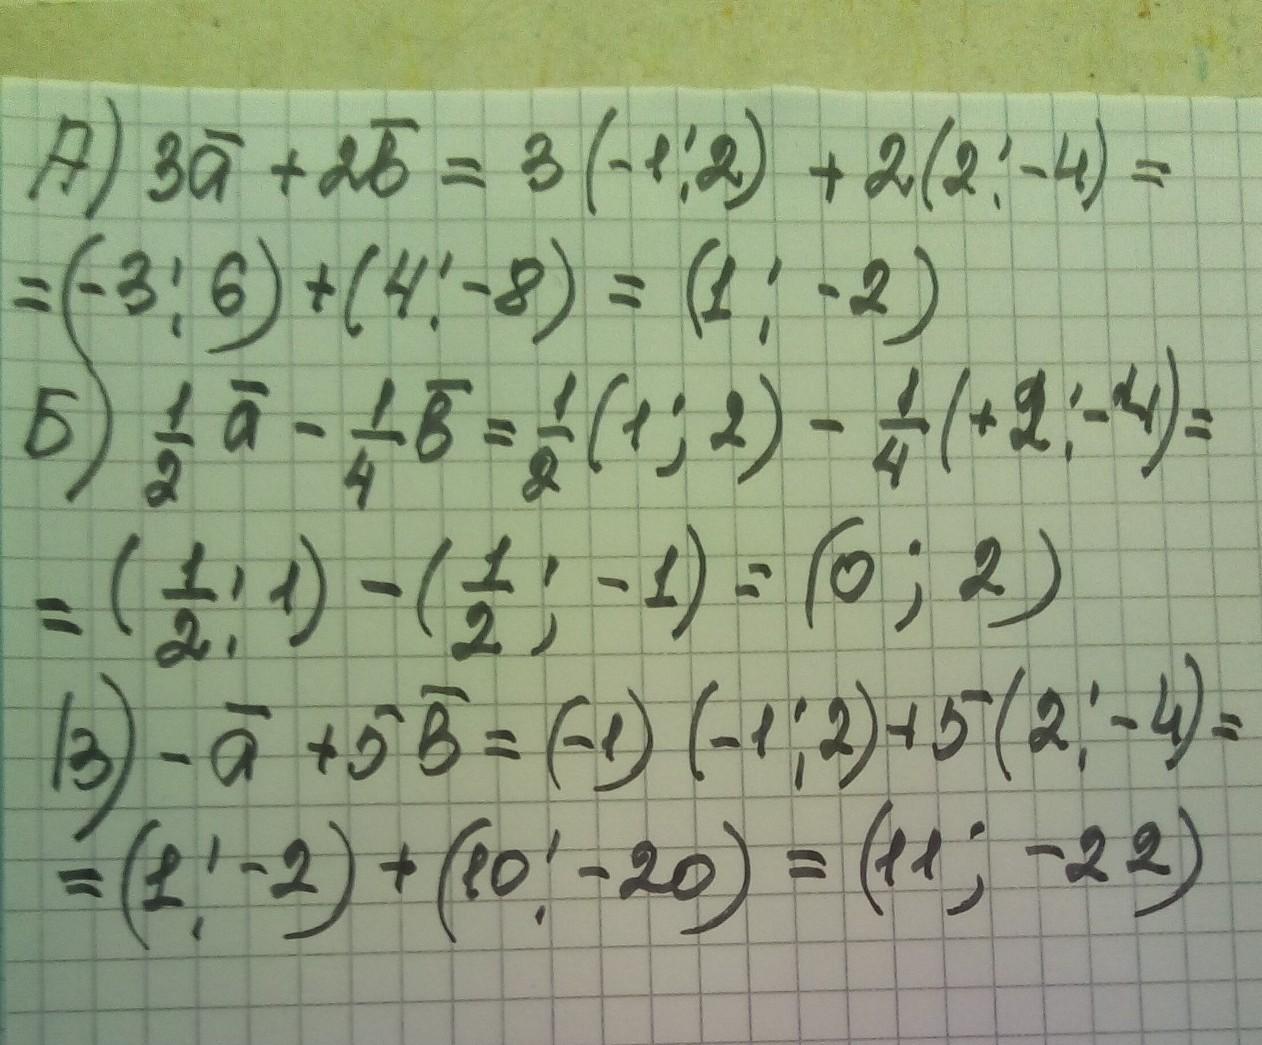 А) 3a̅ + 2b̅ = 3(-1; 2) + 2(2; -4) =
= (-3; 6) + (4; -8) = (1; -2)
Б) 1/2 a̅ - 1/4 b̅ = 1/2 (1; 2) - 1/4 (+2; -4) =
= (1/2; 1) - (1/2; -1) = (0; 2)
В) - a̅ + 5b̅ = (-1) (-1; 2) + 5(2; -4) =
= (1; -2) + (10; -20) = (11; -22)